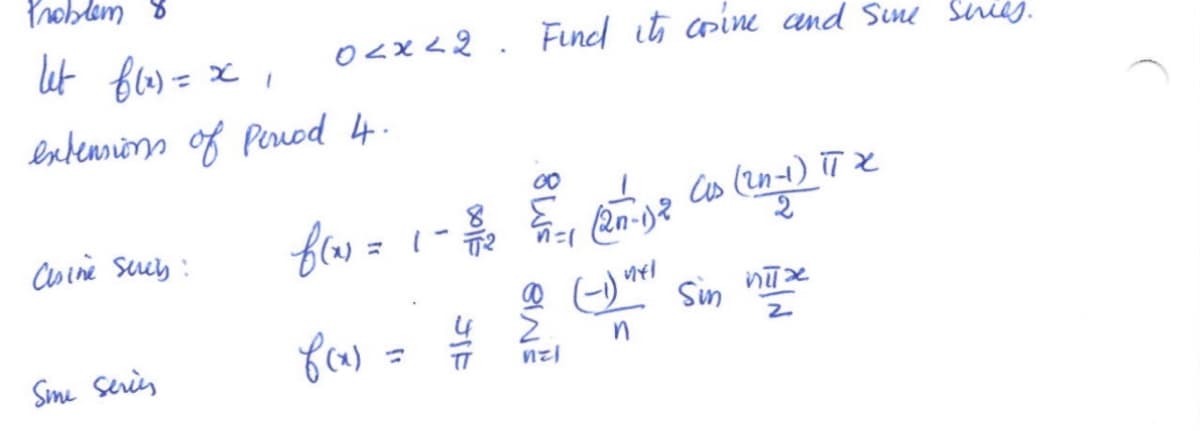 Problem 8
Let f(x) = x , 0 < x < 2 . Find its cosine and sine series.
extensions of Period 4.
Cosine series : f(x) = 1 - 8/π² ∞ Σ n=1 1/(2n-1)² Cos (2n-1)πx/2
Sine series f(x) = 4/π ∞ Σ n=1 (-1)ⁿ⁺¹/n Sin nπx/2